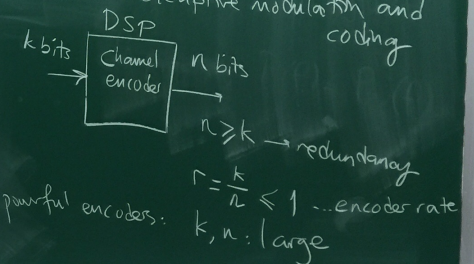 adaptive modulation and
coding
DSP
k bits
Channel
encoder
n bits
n ≥ k → redundancy
r = k/n ≤ 1 ... encoder rate
powerful encoders: k, n : large